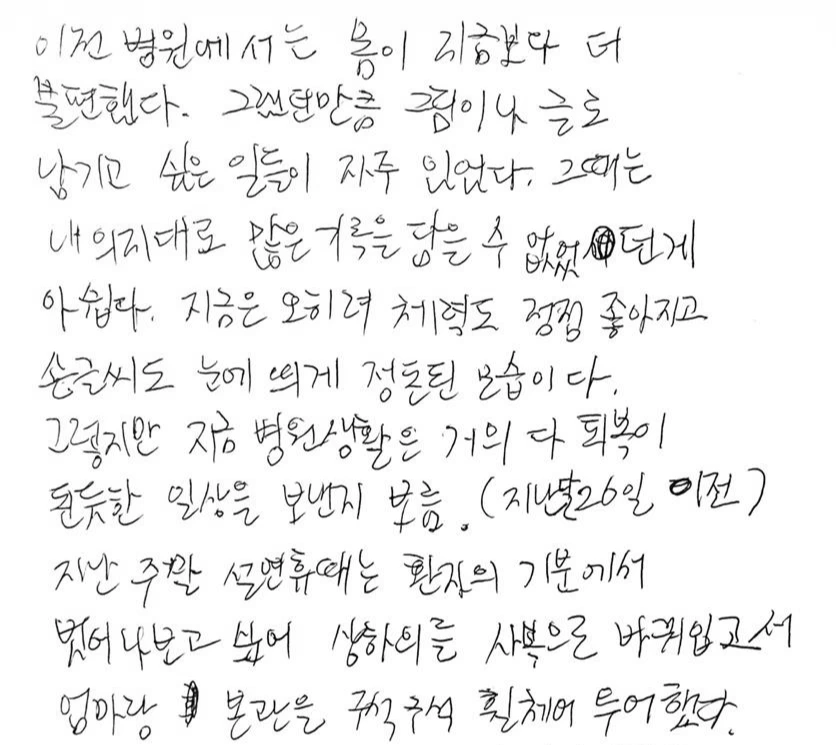 이전 병원에서는 몸이 지금보다 더
불편했다. 그랬던만큼 그림이나 글로
남기고 싶은 일들이 자주 있었다. 그때는
내 의지대로 많은 기록을 담을 수 없었던게
아쉽다. 지금은 오히려 체력도 점점 좋아지고
손글씨도 눈에 띄게 정돈된 모습이다.
그렇지만 지금 병원생활은 거의 다 회복이
된듯한 일상을 보낸지 모름. (지난달26일 이전)
지난 주말 설연휴때는 환자의 기분에서
벗어나보고 싶어 상하의를 사복으로 바꿔입고서
엄마랑 본관을 구석구석 휠체어 투어했다.